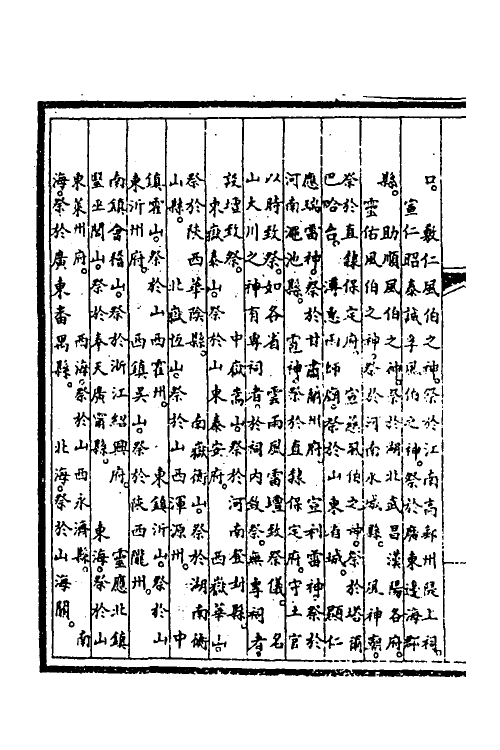 口。　敷仁風伯之神。祭於江南高郵州隄上祠。
宣仁昭泰誠孚風伯之神。祭於廣東邊海郡
縣。　助順風伯之神。祭於湖北武昌漢陽各府。
靈佑風伯之神。祭於河南永城縣。　風神廟。
祭於直隸保定府。宣慈風伯之神。祭於塔爾
巴哈台。　溥惠雨師廟。祭於山東省城。　顯仁
應瑞雷神。祭於甘肅蘭州府。　宣利雷神。祭於
河南澠池縣。　雹神。祭於直隸保定府。守土官
以時致祭。如各省　雲雨風雷壇致祭儀。　名
山大川之神有專祠者。於祠內致祭。無專祠者。
設壇致祭。　中嶽嵩山。祭於河南登封縣。
東嶽泰山。祭於山東泰安府。　西嶽華山。
祭於陝西華陰縣。　南嶽衡山。祭於湖南衡
山縣。　北嶽恆山。祭於山西渾源州。　中
鎮霍山。祭於山西霍州。　東鎮沂山。祭於山
東沂州府。　西鎮吳山。祭於陝西隴州。
南鎮會稽山。祭於浙江紹興府。　靈應北鎮
醫巫閭山。祭於奉天廣甯縣。　東海。祭於山
東萊州府。　西海。祭於山西永濟縣。　南
海。祭於廣東番禺縣。　北海。祭於山海關。